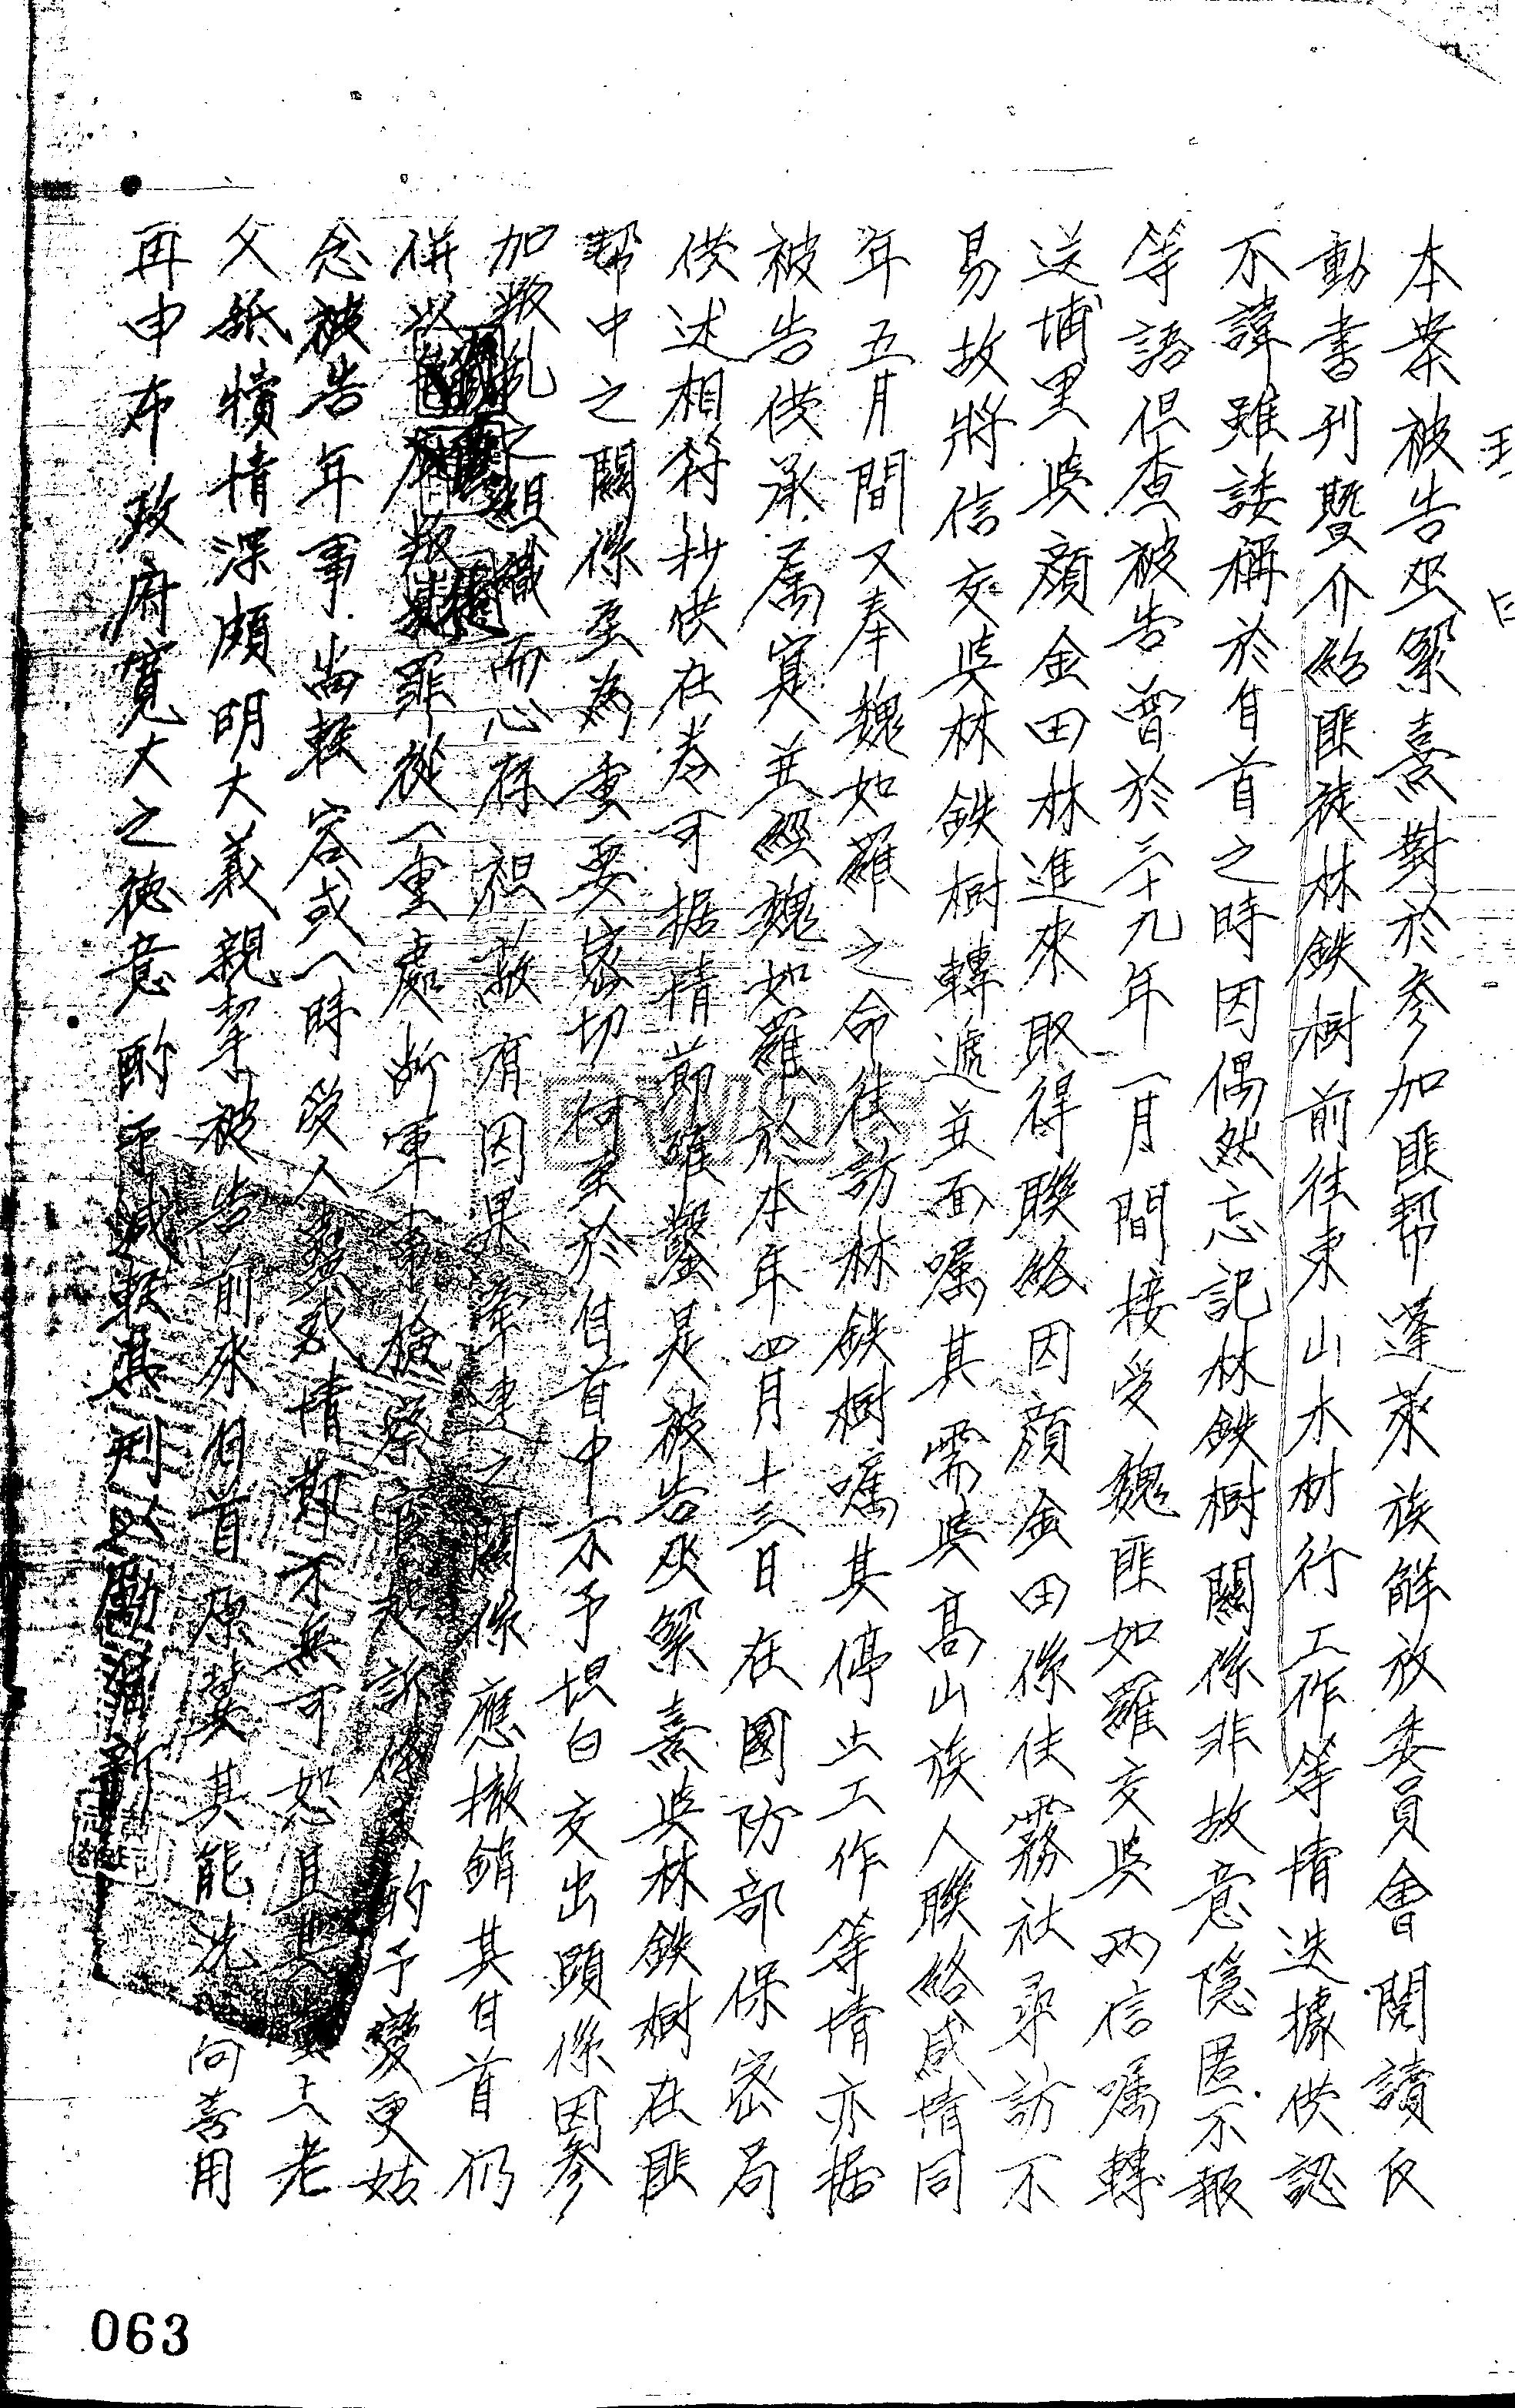 理由
本案被告巫絜熹對於參加匪幫蓬萊族解放委員會閱讀反
動書刊暨介紹匪徒林鉄樹前往東山木材行工作等情迭據供認
不諱雖諉稱於自首之時因偶然忘記林鉄樹關係非故意隱匿不報
等語但查被告曾於三十九年一月間接受魏匪如羅交吳兩信囑轉
送埔里吳顏金田林進來取得聯絡因顏金田係住霧社尋訪不
易故將信交吳林鉄樹轉遞並面囑其需與高山族人聯絡感情同
年五月間又奉魏如羅之命往訪林鉄樹囑其停止工作等情亦据
被告供承屬實並經魏如羅於本年四月十三日在國防部保密局
供述相符抄供在卷可据情節確鑿是被告巫絜熹與林鉄樹在匪
幫中之關係至為重要密切何至於自首中不予坦白交出顕係因參
加叛乱之組織而心存袒救有因果牽連之關係應撤銷其自首仍
併以 叛亂罪從一重處斷軍事檢察官起訴條文酌予變更姑
念被告年事尚輕容或一時受人蠱惑情節不無可恕且其 上老
父舐犢情深頗明大義親挈被告前來自首原冀其能洗 向善用
再申布政府寬大之德意酌予減輕其刑以勵自新
063